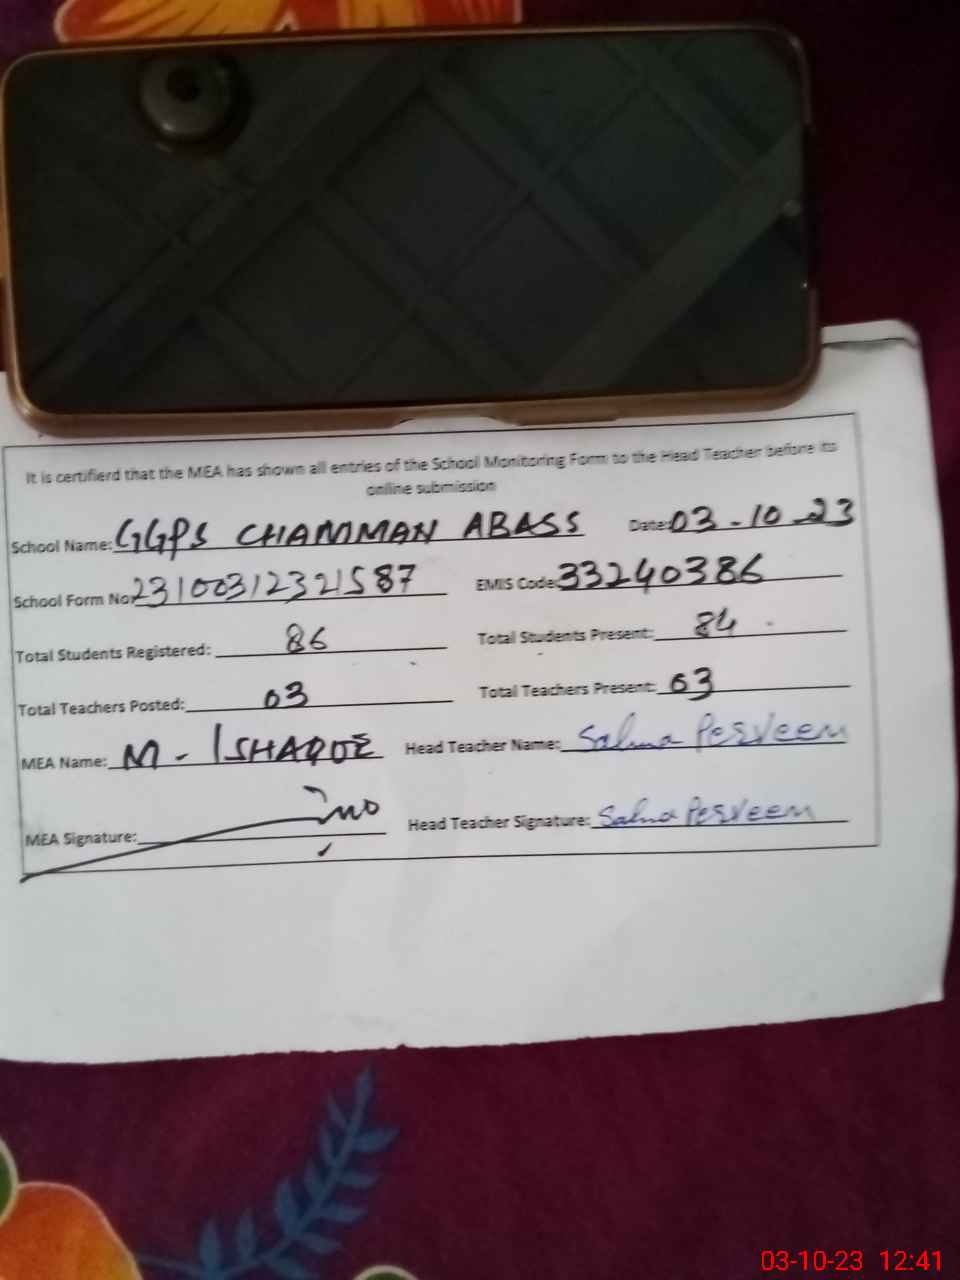 It is certifierd that the MEA has shown all entries of the School Monitoring Form to the Head Teacher before its
online submission
School Name: GGPS CHAMMAN ABASS Date: 03-10-23
School Form No: 23100312321587 EMIS Code: 33240386
Total Students Registered: 86 Total Students Present: 84
Total Teachers Posted: 03 Total Teachers Present: 03
MEA Name: M-ISHAQUE Head Teacher Name: Salma Perveen
MEA Signature: Head Teacher Signature: Salma Perveen
03-10-23 12:41